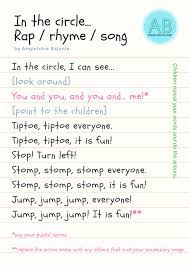 In the circle...
Rap / rhyme / song
by Angelskie Bajanie
AB
In the circle, I can see...
[look around]
You and you, and you and... me!*
[point to the children]
Tiptoe, tiptoe everyone.
Tiptoe, tiptoe, it is fun!
Stop! Turn left!
Stomp, stomp, stomp everyone.
Stomp, stomp, stomp, it is fun!
Jump, jump, jump, everyone!
Jump, jump, jump! It is fun!**
*say your pupils' names
**replace the action verbs with any others that suit your vocabulary range
Children repeat your words and do the actions.